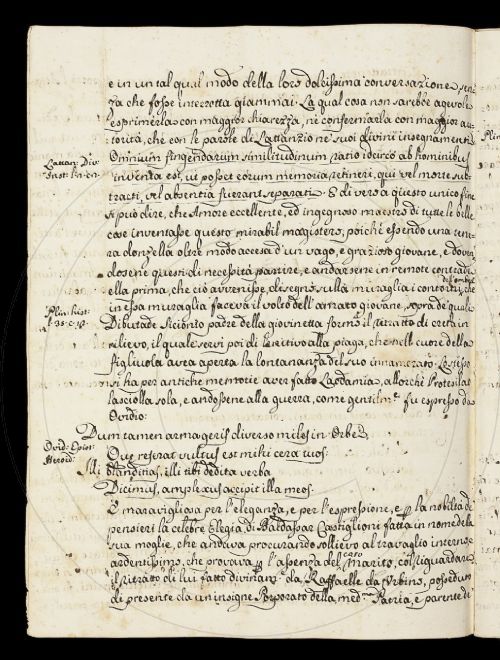 e in un tal qual modo della loro dolcissima conversazione, sen
za che fosse interrotta giammai. La qual cosa non sarebbe agevole
esprimerla con maggior chiarezza, nè confermarla con maggior au-
torità, che con le parole di Lattanzio ne' suoi divini insegnamenti
Lattan: Div:
Omnium fingendarum similitudinum ratio idcirco ab hominibus
Inst:
inventa est, ut posset eorum memoria retineri, qui vel morte sub-
tracti, vel absentia fuerant separati. E di vero a questo unico fine
si può dire, che Amore eccellente, ed ingegnoso maestro di tutte le belle
cose inventasse questo mirabil magistero; poichè essendo una tene-
ra donzella oltre modo accesa d'un vago, e grazioso giovane, e doven
dosene questi di necessità partire, e andarsene in remote contrade
dell'ombra
ella prima, che ciò avvenisse, disegnò sulla muraglia i contorni, che
Plin: hist:
in essa muraglia faceva il volto dell'amato giovane, sopra de' quali
l. 35. c. 12.
Dibutade Sicionio padre della giovinetta formò il ritratto di certa in
rilievo, il quale servì poi di lenitivo alla piaga, che nell cuore della
figliuola avea aperta la lontananza del suo innamorato. Lo stesso
si ha per antiche memorie aver fatto Laodamia, allorchè Protesilao
lasciolla sola, e andossene alla guerra, come gentilm.te fu espresso da
Ovidio:
Dum tamen arma geris diverso miles in Orbe,
Ovid: Epist:
Heroid:
Que referat vultus est mihi cera tuos:
Illi blanditias, illi tibi dedita verba
Dicimus, amplexus accipit illa meos.
È maravigliosa per l'eleganza, e per l'espressione, e p la nobiltà de
pensieri la celebre Elegia di Baldassar Castiglioni fatta in nome della
sua moglie, che andava procurando sollievo al travaglio interno
ardentissimo, che provava p l'assenza del Marito, col riguardare
il ritratto di lui fatto divinam.te da Raffaelle da Urbino, posseduto
di presente da un insigne Porporato della med.ma Patria, e parente di